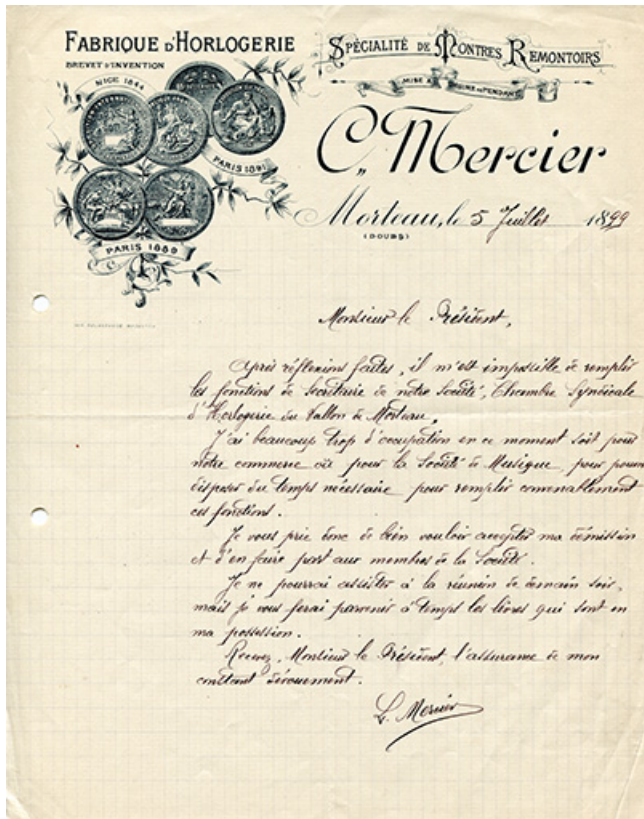 FABRIQUE D'HORLOGERIE
BREVET D'INVENTION
SPÉCIALITÉ DE MONTRES REMONTOIRS
MISE À L'HEURE AU PENDANT
NICE 1844
PARIS 1891
PARIS 1889
C. Mercier
Morteau, le 5 Juillet 1899
(DOUBS)
Monsieur le Président,
Après réflexions faites, il m'est impossible de remplir
les fonctions de Secrétaire de notre Société, Chambre Syndicale
d'Horlogerie du Vallon de Morteau.
J'ai beaucoup trop d'occupation en ce moment soit pour
notre commerce où pour la Société de Musique, pour pouvoir
disposer du temps nécessaire pour remplir convenablement
ces fonctions.
Je vous prie donc de bien vouloir accepter ma démission
et d'en faire part aux membres de la Société.
Je ne pourrai assister à la réunion de demain soir,
mais je vous ferai parvenir à temps les livres qui sont en
ma possession.
Recevez, Monsieur le Président, l'assurance de mon
constant dévouement.
Mercier